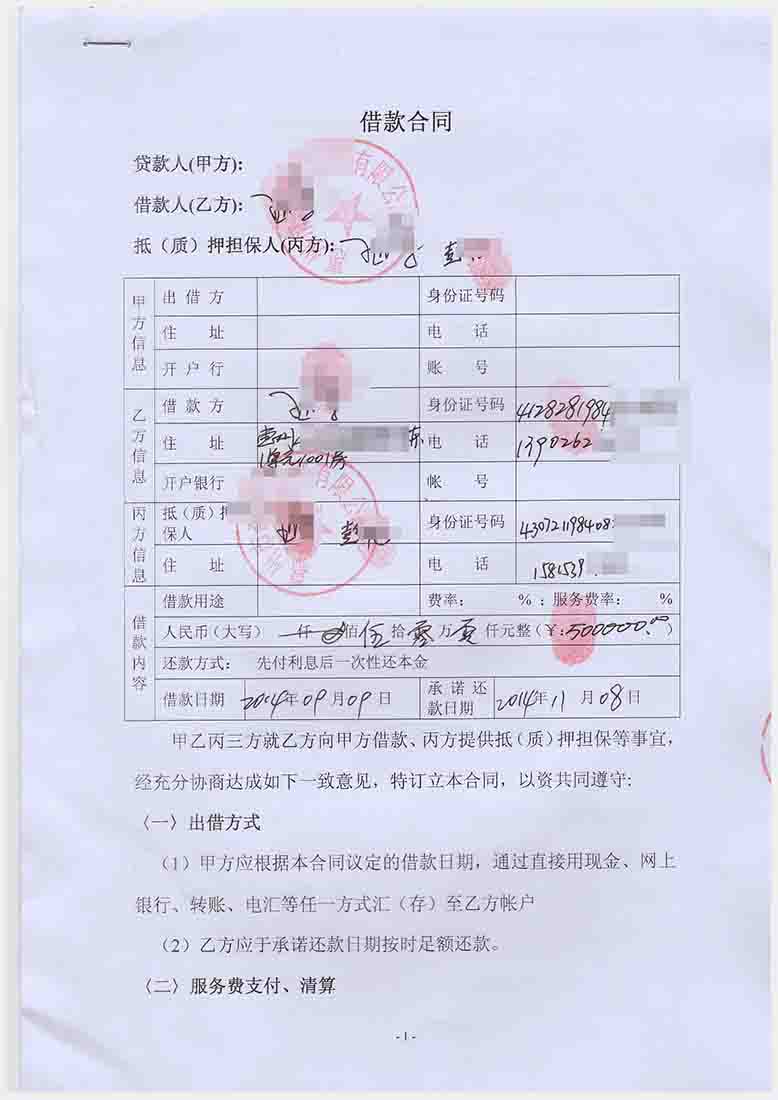 借款合同
贷款人(甲方):
借款人(乙方):
抵（质）押担保人(丙方): 彭
有限公
甲方信息
出借方 身份证号码
住 址 电 话
开户行 账 号
乙方信息
借款方 身份证号码 4128281984
住 址 东 电 话 1390262
1单元1001房
开户银行 帐 号
有限公
丙方信息
抵（质）押
保人 彭 身份证号码 430721198408
住 址 电 话 1581539
借款内容
借款用途 费率： %：服务费率： %
人民币（大写） 仟 佰 伍 拾 零 万 零 仟元整（¥:500000.00）
还款方式： 先付利息后一次性还本金
借款日期 2014年09月09日 承诺还款日期 2014年11月08日
甲乙丙三方就乙方向甲方借款、丙方提供抵（质）押担保等事宜，
经充分协商达成如下一致意见，特订立本合同，以资共同遵守:
〈一〉出借方式
（1）甲方应根据本合同议定的借款日期，通过直接用现金、网上
银行、转账、电汇等任一方式汇（存）至乙方帐户
（2）乙方应于承诺还款日期按时足额还款。
〈二〉服务费支付、清算
- 1 -